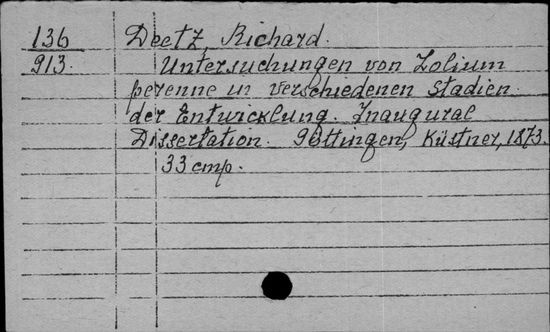 136 Deetz, Richard.
913. Untersuchungen von Lolium
perenne in verschiedenen Stadien
der Entwicklung. Inaugural
Dissertation. Göttingen, Küstner, 1873.
33 cmp.